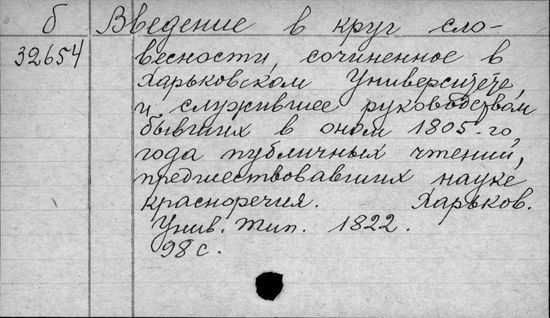 б Введение в круг сло-
32654 весности, сочиненное в
Харьковском Университете,
и служившее руководством
бывших в оном 1805-го
года публичных чтений,
предшествовавших науке
красноречия. Харьков.
Унив. тип. 1822.
98 с.